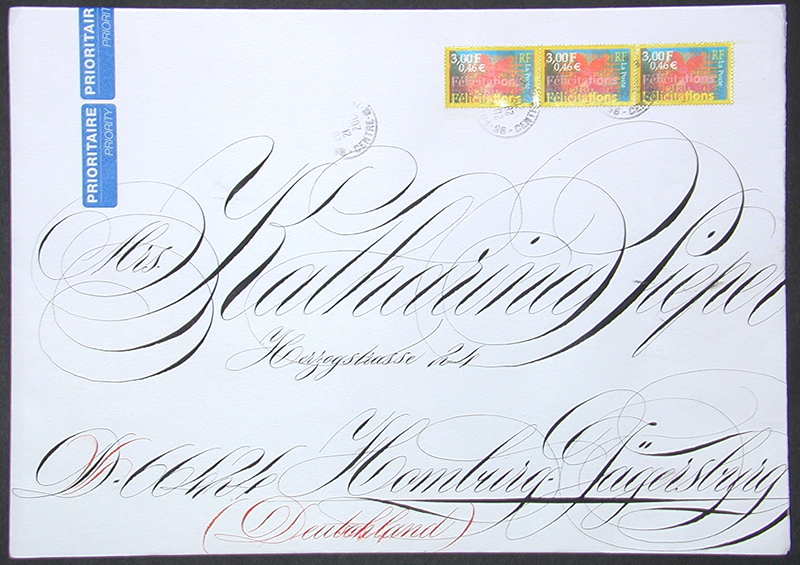 PRIORITAIRE
PRIORITY
PRIORITAIRE
PRIORITY
3,00F RF
0,46 € La Poste
Félicitations
Félicitations
3,00F RF
0,46 € La Poste
Félicitations
Félicitations
3,00F RF
0,46 € La Poste
Félicitations
Félicitations
CENTRE
Mrs. Katharina Pieper
Herzogstrasse 24
D-66424 Homburg-Jägersburg
(Deutchland)